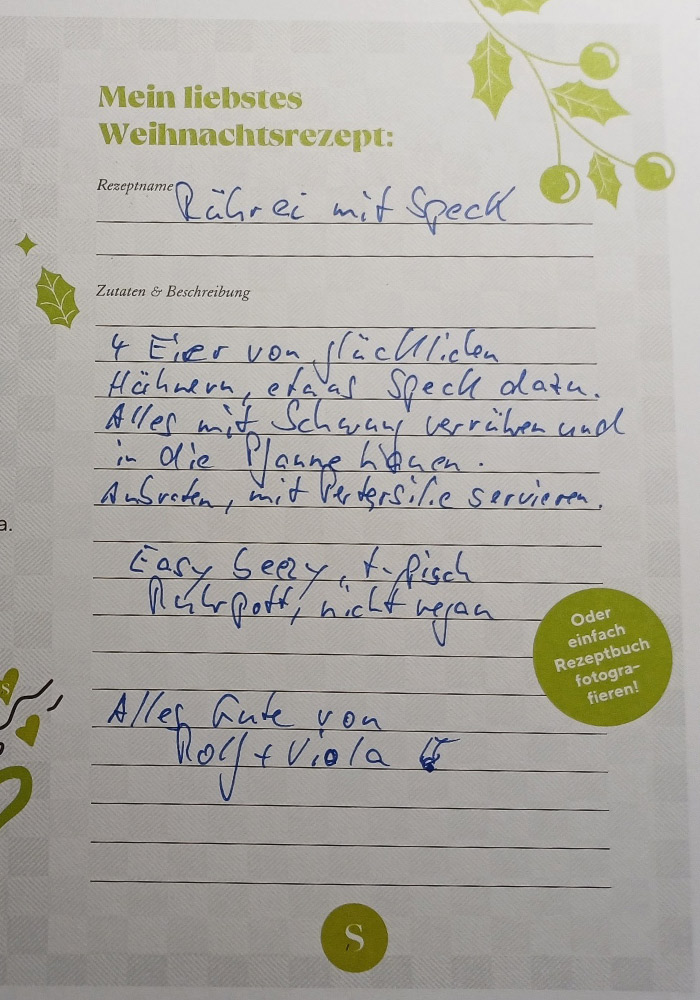 Mein liebstes
Weihnachtsrezept:
Rezeptname Rührei mit Speck
Zutaten & Beschreibung
4 Eier von glücklichen
Hühnern, etwas Speck dazu.
Alles mit Schwung verrühren und
in die Pfanne hauen.
Anbraten, mit Petersilie servieren.
a.
Easy beezy, typisch
Ruhrpott, nicht vegan
Oder
einfach
Rezeptbuch
fotogra-
fieren!
S
Alles Gute von
Rolf + Viola
S